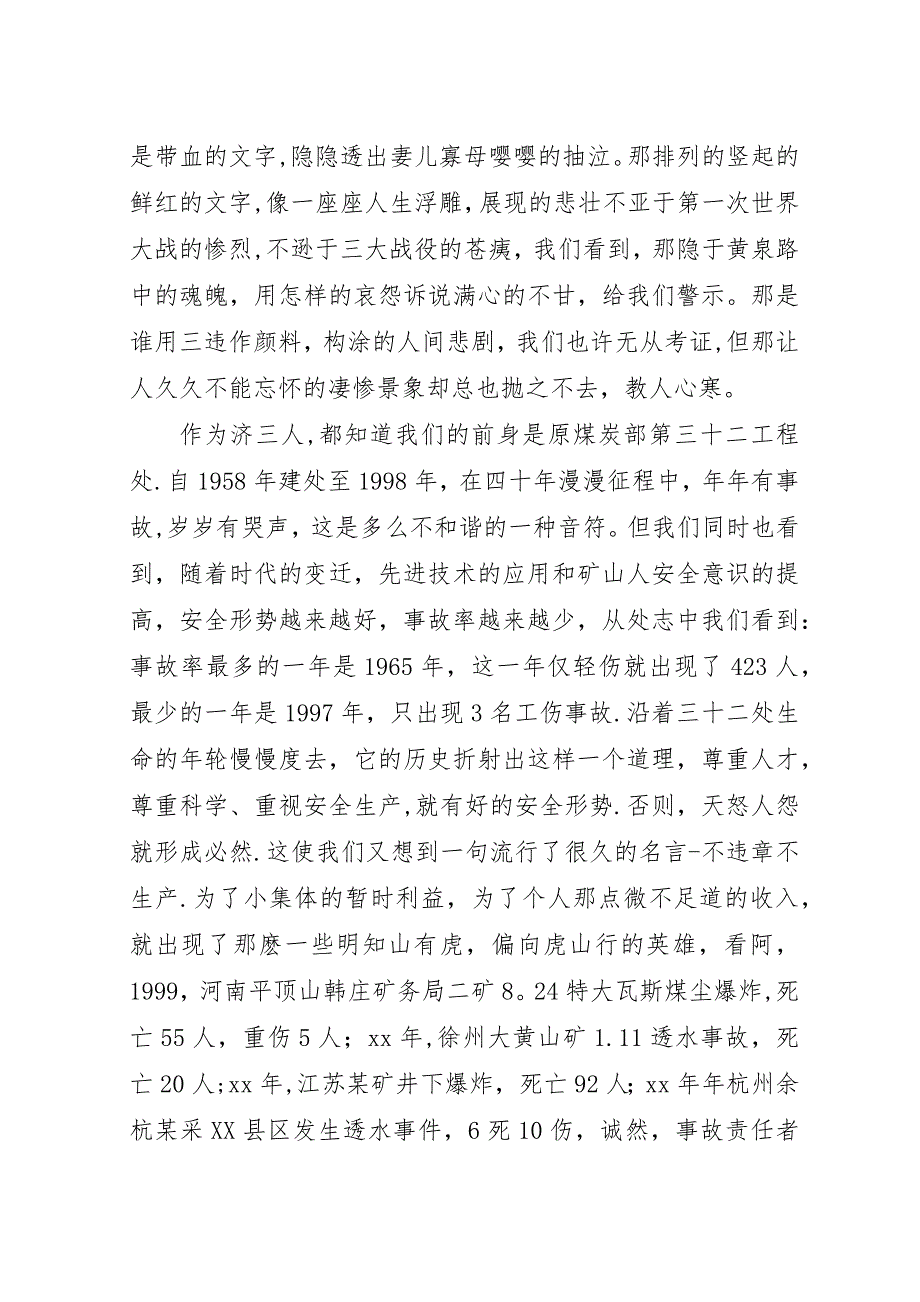 是带血的文字,隐隐透出妻儿寡母嘤嘤的抽泣。那排列的竖起的
鲜红的文字,像一座座人生浮雕，展现的悲壮不亚于第一次世界
大战的惨烈,不逊于三大战役的苍痍，我们看到，那隐于黄泉路
中的魂魄，用怎样的哀怨诉说满心的不甘，给我们警示。那是
谁用三违作颜料，构涂的人间悲剧，我们也许无从考证,但那让
人久久不能忘怀的凄惨景象却总也抛之不去，教人心寒。
作为济三人,都知道我们的前身是原煤炭部第三十二工程
处.自1958年建处至1998年，在四十年漫漫征程中，年年有事
故,岁岁有哭声，这是多么不和谐的一种音符。但我们同时也看
到，随着时代的变迁，先进技术的应用和矿山人安全意识的提
高，安全形势越来越好，事故率越来越少，从处志中我们看到：
事故率最多的一年是1965年，这一年仅轻伤就出现了423人，
最少的一年是1997年，只出现3名工伤事故.沿着三十二处生
命的年轮慢慢度去，它的历史折射出这样一个道理，尊重人才，
尊重科学、重视安全生产,就有好的安全形势.否则，天怒人怨
就形成必然.这使我们又想到一句流行了很久的名言-不违章不
生产.为了小集体的暂时利益，为了个人那点微不足道的收入，
就出现了那麽一些明知山有虎，偏向虎山行的英雄，看阿，
1999，河南平顶山韩庄矿务局二矿8。24特大瓦斯煤尘爆炸,死
亡55人，重伤5人；xx年,徐州大黄山矿1.11透水事故，死
亡20人;xx年,江苏某矿井下爆炸，死亡92人；xx年年杭州余
杭某采XX县区发生透水事件，6死10伤，诚然，事故责任者